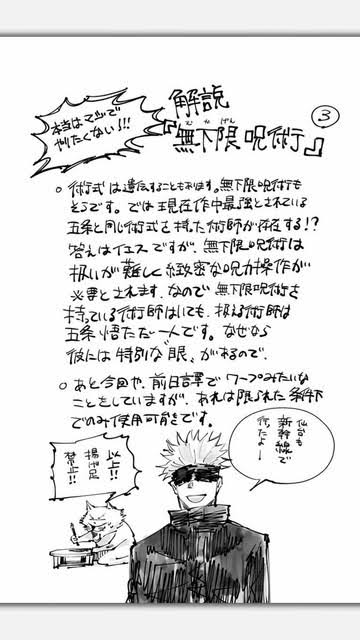 本当はマジで
やりたくない!!!
解説
③
『無下限呪術』
むかげん
○術式は遺伝することもあります。無下限呪術も
そうです。では現在作中最強とされている
五条と同じ術式を持った術師が存在する!?
答えはイエスですが、無下限呪術は
扱いが難しく緻密な呪力操作が
必要とされます。なので無下限呪術を
持っている術師はいても、扱える術師は
五条悟ただ一人です。なぜなら
彼には特別な“眼”があるので。
○あと今回や、前日譚でワープみたいな
ことをしていますが、あれは限られた条件下
でのみ使用可能です。
仙台も
新幹線で
行ったよー
以上!!
揚げ足
禁止!!